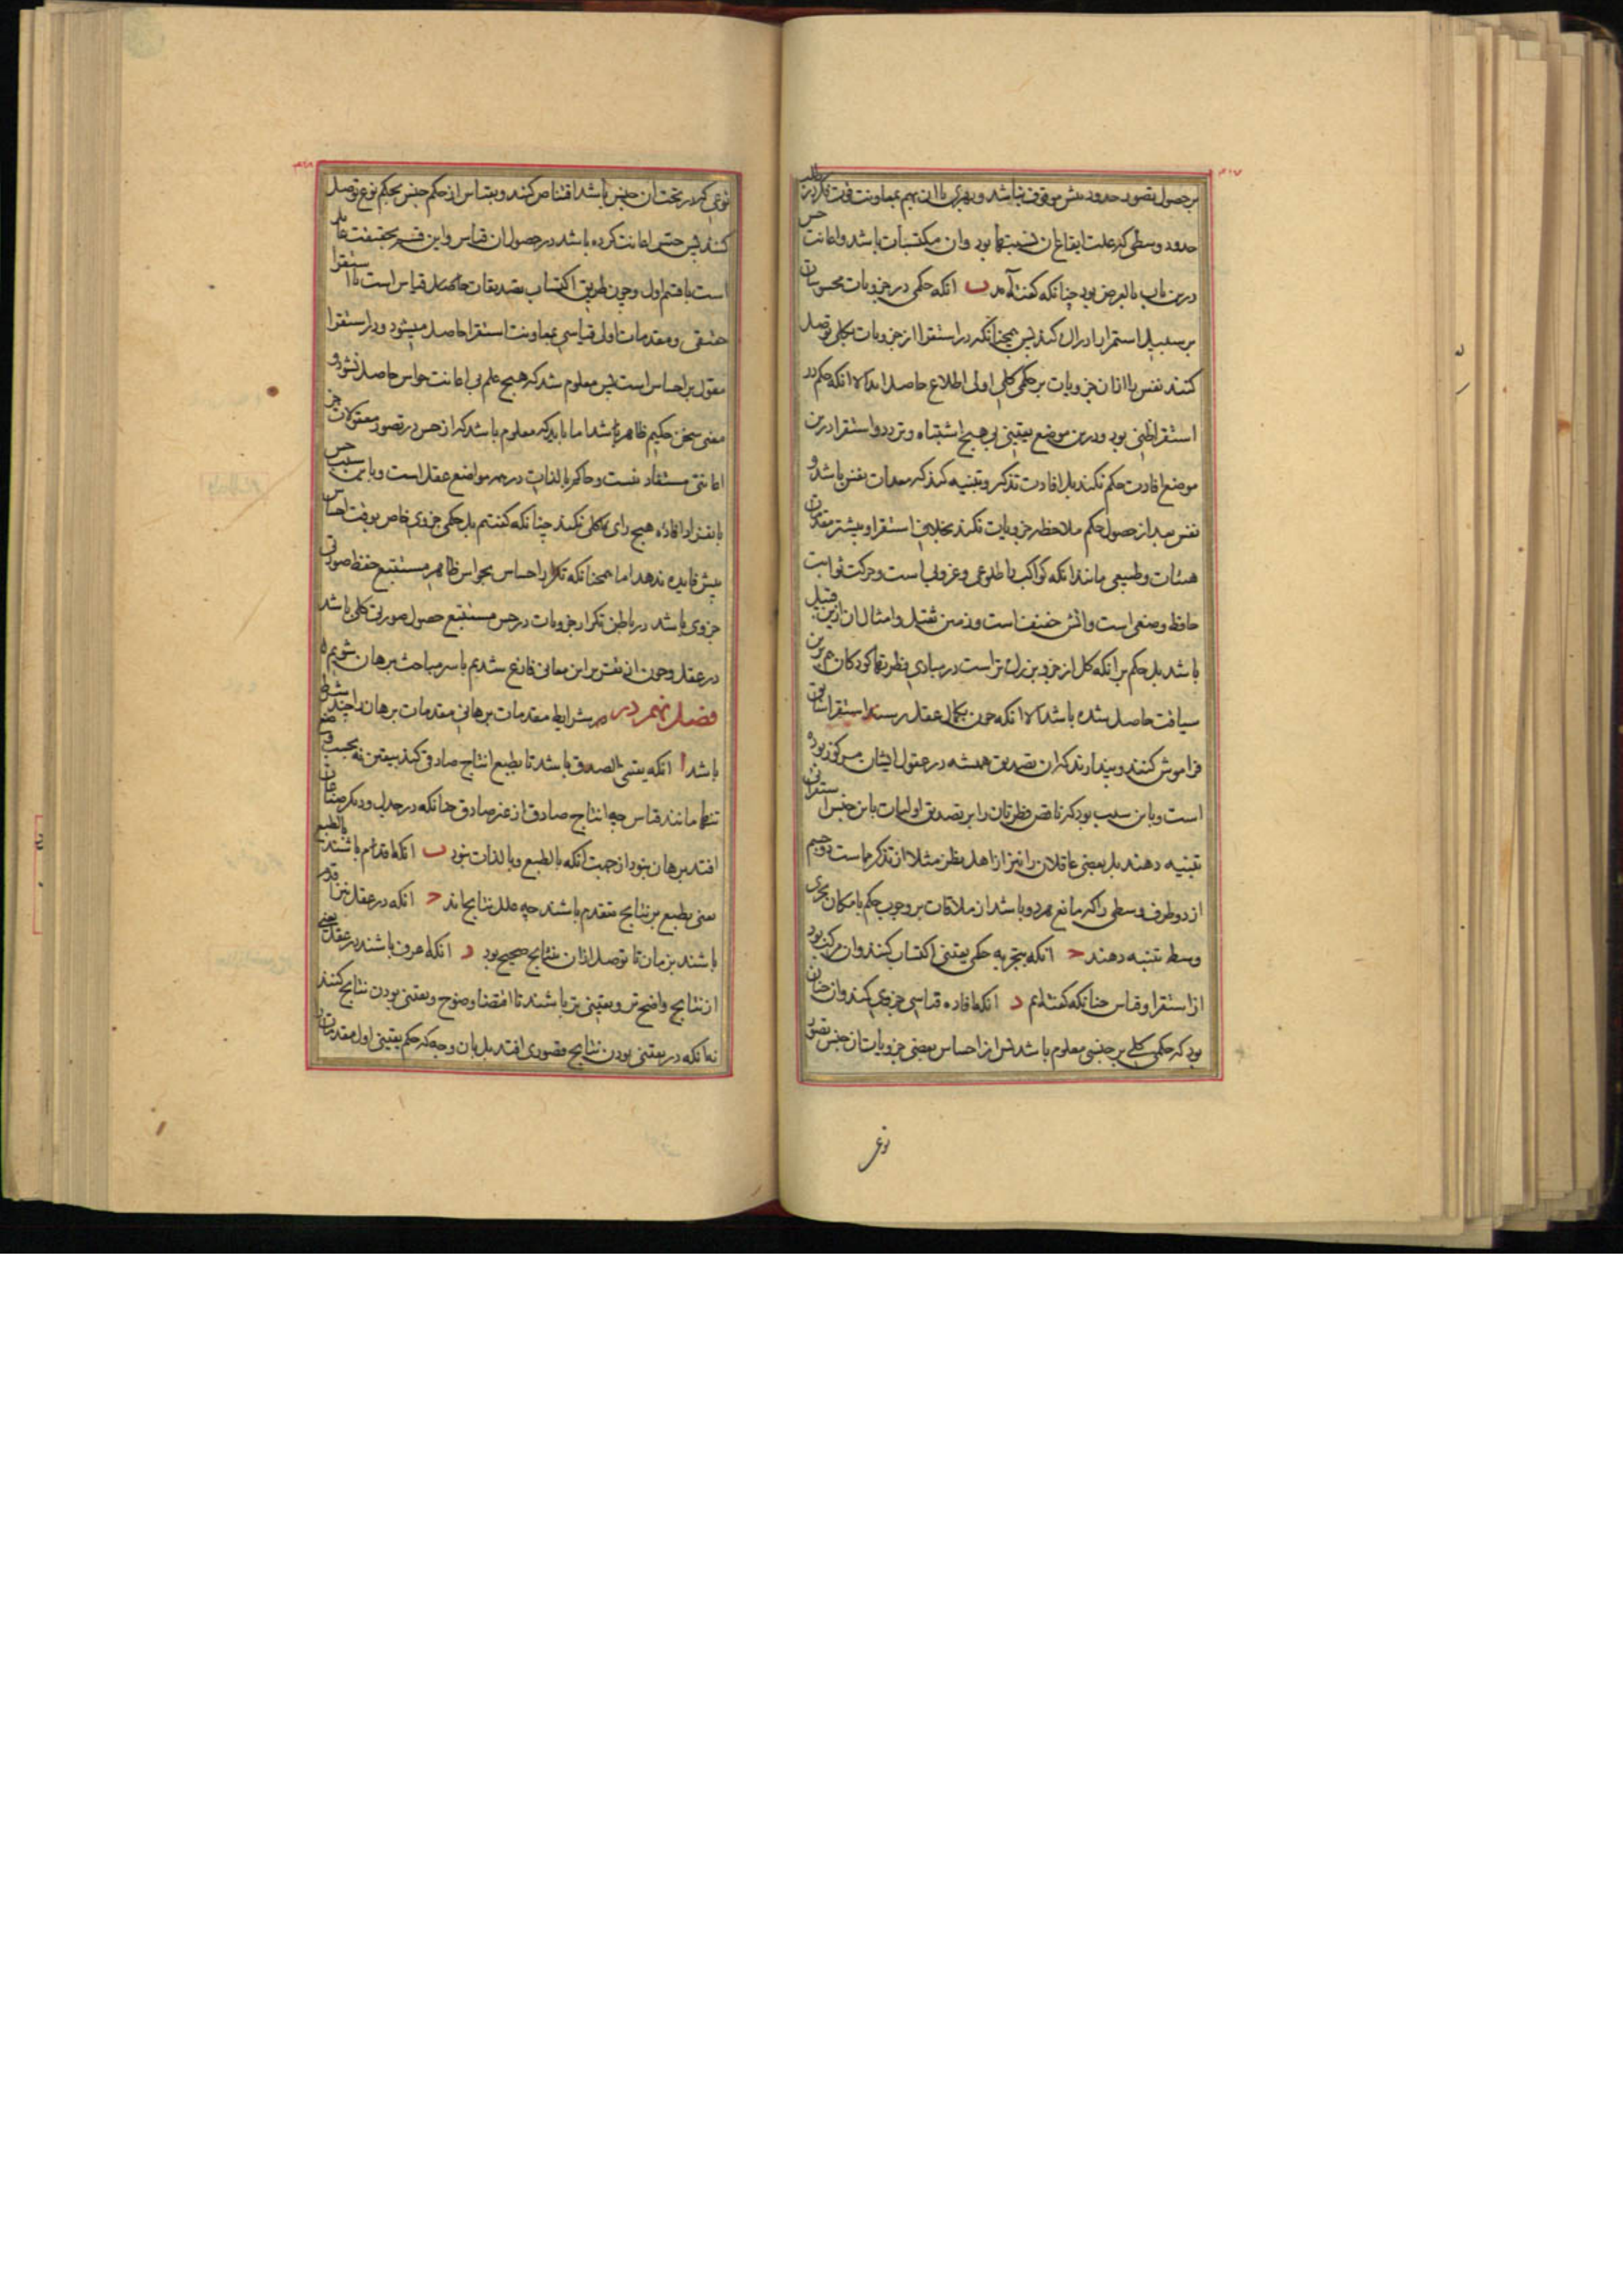 بر حصول تصور حدود بیش موقوف نباشد و بهری با آن بهم بمعاونت قوت فکر در طلب
حدود وسطی که علت ایقاع آن نسبتها بود وان مکتسبات باشد و اعانت حس
درین باب بالعرض بود چنانکه گفته آمد ب انکه حکمی در جزویات محسوسات
بر سبیل استمرار ادراک کند پس همچنانکه در استقرا از جزویات بکلی توصل
کنند نفس را از ان جزویات بر حکمی کلی اولی اطلاع حاصل اید الا انکه حکم در
استقرا ظنی بود و درین موضع یقینی بی هیچ اشتباه و تردد و استقرا درین
موضع افادت حکم نکند بل افادت تذکر و تنبیه کند که معدات نفس باشد و
نفس بعد از حصول حکم ملاحظه جزویات نکند بخلاف استقرا و بیشتر مقدمات
هیئات و طبیعی مانند انکه کواکب را طلوعی و غروبی است و حرکت ثوابت
حافظ وضعی است و اتش خفیف است و زمین ثقیل و امثال ان ازین قبیل
باشد بل حکم بر انکه کل از جزو بزرگ تر است در مبادی فطرتها کودکان هم برین
سیاقت حاصل شده باشد الا انکه چون بکمال عقل رسند استقراء سابق
فراموش کنند و پندارند که ان تصدیق همیشه در عقول ایشان مرکوز بوده
است و باین سبب بود که ناقص فطرتان را بر تصدیق اولیات باین جنس استقرائی
تنبیه دهند بل بعضی عاقلان را نیز از اهل نظر مثلا از تذکر مماست دو جسم
از دو طرف وسطی را که مانع هر دو باشد از ملاقات بر وجوب حکم بامکان تجزی
وسط تنبیه دهند ج انکه بتجربه حکمی یقینی اکتساب کنند وان مرکب بود
از استقرا و قیاس چنانکه گفته‌ایم د انکه افاده قیاسی جزوی کند وان چنان
بود که حکمی کلی بر جنسی معلوم باشد پس از احساس بعضی جزویات ان جنس تصور
نوعی
نوعی که در تحت ان جنس باشد اقتناص کند و بقیاس از حکم جنس بحکم نوع توصل
کند پس حس اعانت کرده باشد در حصول ان قیاس و این قسم بحقیقت عاید
است با قسم اول و چون طریق اکتساب تصدیقات حاصل قیاس است با استقرا
حقیقی و مقدمات اولی قیاسی بمعاونت استقرا حاصل میشود و در استقرا
معول بر احساس است پس معلوم شد که هیچ علم بی اعانت حواس حاصل نشود و
معنی سخن حکیم ظاهر باشد اما باید که معلوم باشد که از حس در تصور معقولات جز
اعانتی مستفاد نیست و حاکم بالذات در همه مواضع عقل است و باین سبب حس
بانفراد افاده هیچ رای کلی نکند چنانکه گفتیم بل حکمی جزوی خاص بوقت احساس
بیش فایده ندهد اما همچنانکه تکرار احساس بحواس ظاهر مستتبع حفظ صورتی
جزوی باشد در باطن تکرار جزویات در حس مستتبع حصول صورتی کلی باشد
در عقل و چون از تقریر این معانی فارغ شدیم با سر مباحث برهان شویم
فصل نهم در در شرایط مقدمات برهانی مقدمات برهان را چند شرط
باشد ا انکه یقینی الصدق باشد تا بطبع انتاج صادق کند بیقین نه بحسب وضع
تنها مانند قیاس چه انتاج صادق از غیر صادق چنانکه در جدل و دیگر صناعات
افتد برهان نبود از جهت آنکه بالطبع و بالذات نبود ب انکه اقدم باشند بالطبع
یعنی بطبع بر نتایج متقدم باشند چه علل نتایج‌اند ج انکه در عقل نیز اقدم
باشند بزمان تا توصل ازان بنتایج صحیح بود د انکه اعرف باشند در عقل یعنی
از نتایج واضح تر و یقینی تر باشند تا اقتضا وضوح و یقینی بودن نتایج کنند
نه انکه در یقینی بودن نتایج قصوری افتد بل بان وجه که حکم یقینی اول مقدمات را